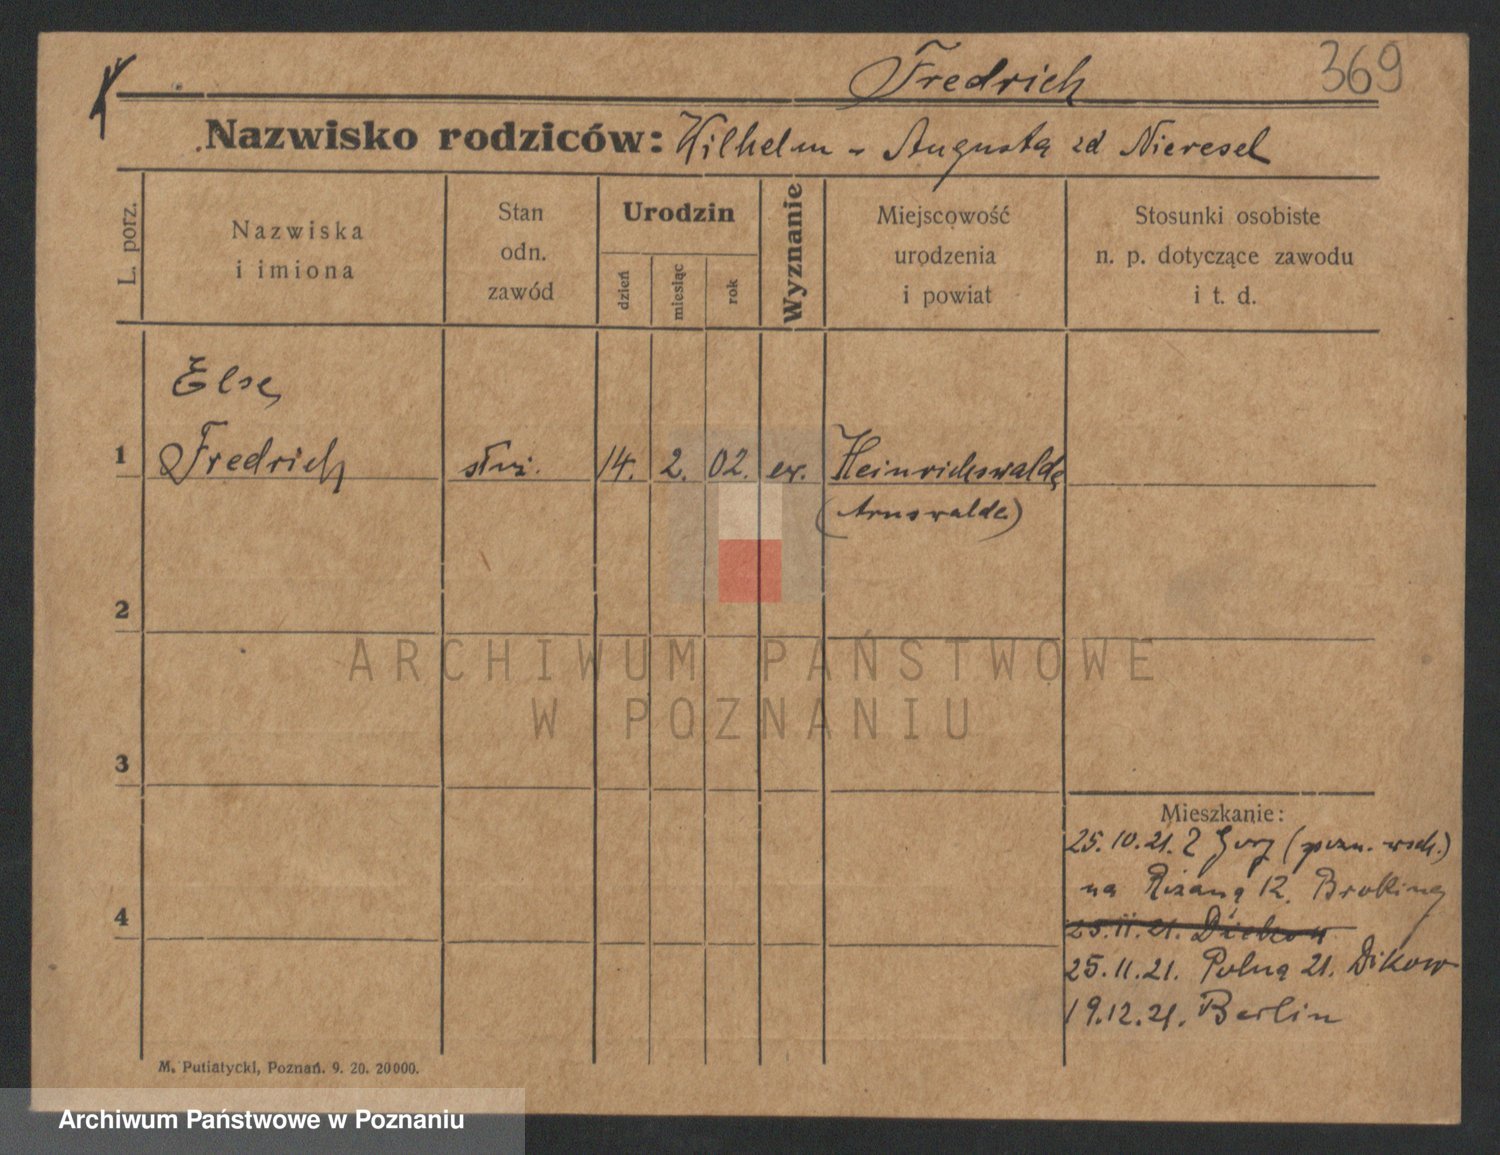 Fredrich
369
Nazwisko rodziców: Wilhelm - Augusta zd Nieresel
L. porz.
Nazwiska
i imiona
Stan
odn.
zawód
Urodzin
dzień
miesiąc
rok
Wyznanie
Miejscowość
urodzenia
i powiat
Stosunki osobiste
n. p. dotyczące zawodu
i t. d.
Else
1 Fredrich służ. 14. 2. 02. ew. Heinrichswalde
(Arnswalde)
2
3
4
Mieszkanie:
25.10.21. Z (pozn. wsch.)
na 12.
25.11.21.
25.11.21. Polną 21. Dikow
19.12.21. Berlin
M. Putiatycki, Poznań. 9. 20. 20000.
ARCHIWUM PAŃSTWOWE
W POZNANIU
Archiwum Państwowe w Poznaniu